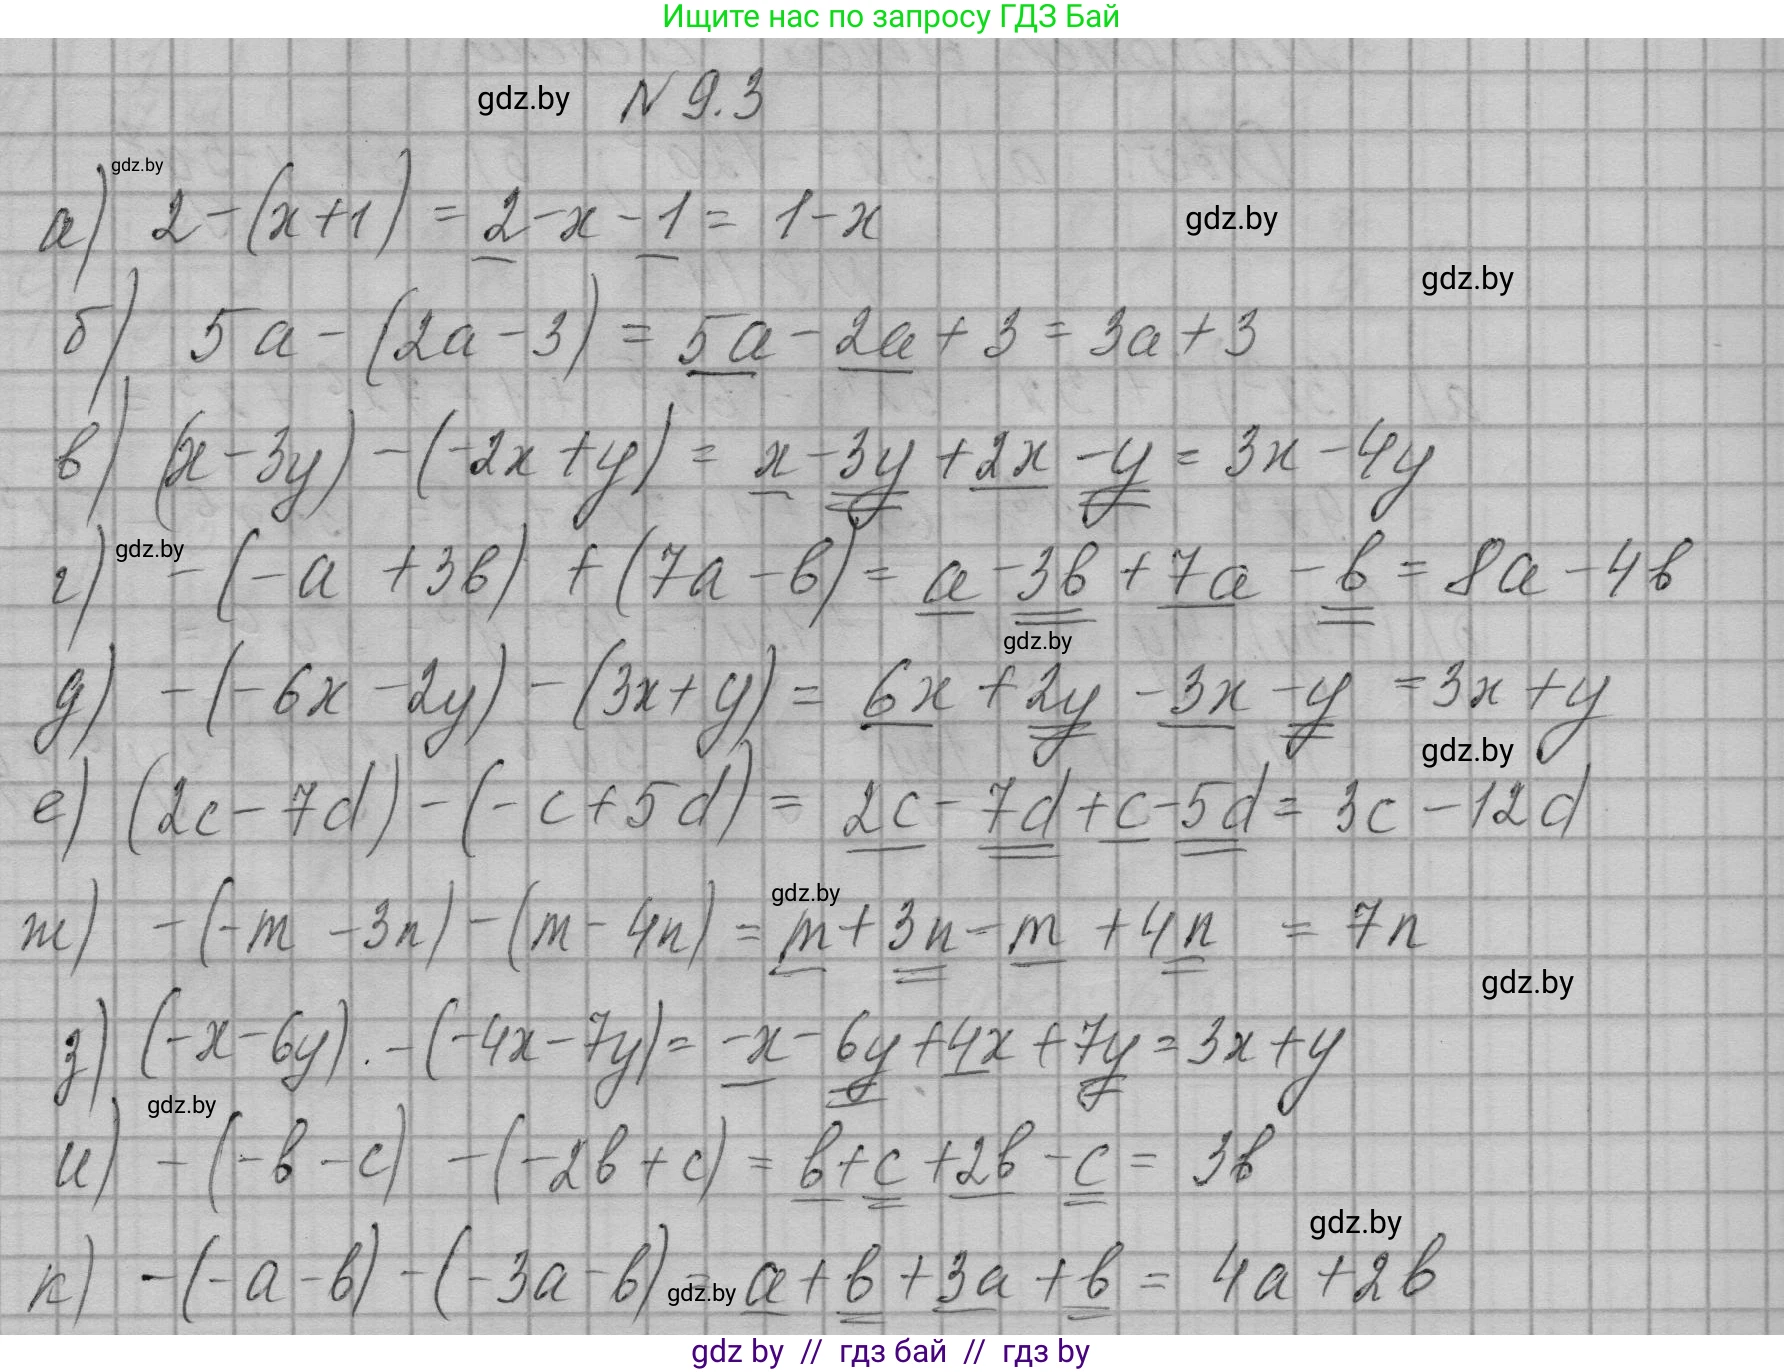 Ищите нас по запросу ГДЗ Бай
gdz.by № 9.3
gdz.by
а) 2-(x+1) = 2-x-1 = 1-x
gdz.by
gdz.by
б) 5a-(2a-3) = 5a-2a+3 = 3a+3
в) (x-3y)-(-2x+y) = x-3y+2x-y = 3x-4y
gdz.by
г) -(-a+3b)+(7a-b) = a-3b+7a-b = 8a-4b
gdz.by
д) -(-6x-2y)-(3x+y) = 6x+2y-3x-y = 3x+y
gdz.by
е) (2c-7d)-(-c+5d) = 2c-7d+c-5d = 3c-12d
gdz.by
ж) -(-m-3n)-(m-4n) = m+3n-m+4n = 7n
gdz.by
з) (-x-6y).-(-4x-7y) = -x-6y+4x+7y = 3x+y
gdz.by
и) -(-b-c)-(-2b+c) = b+c+2b-c = 3b
gdz.by
к) -(-a-b)-(-3a-b) = a+b+3a+b = 4a+2b
gdz.by
gdz by // гдз бай // гдз by